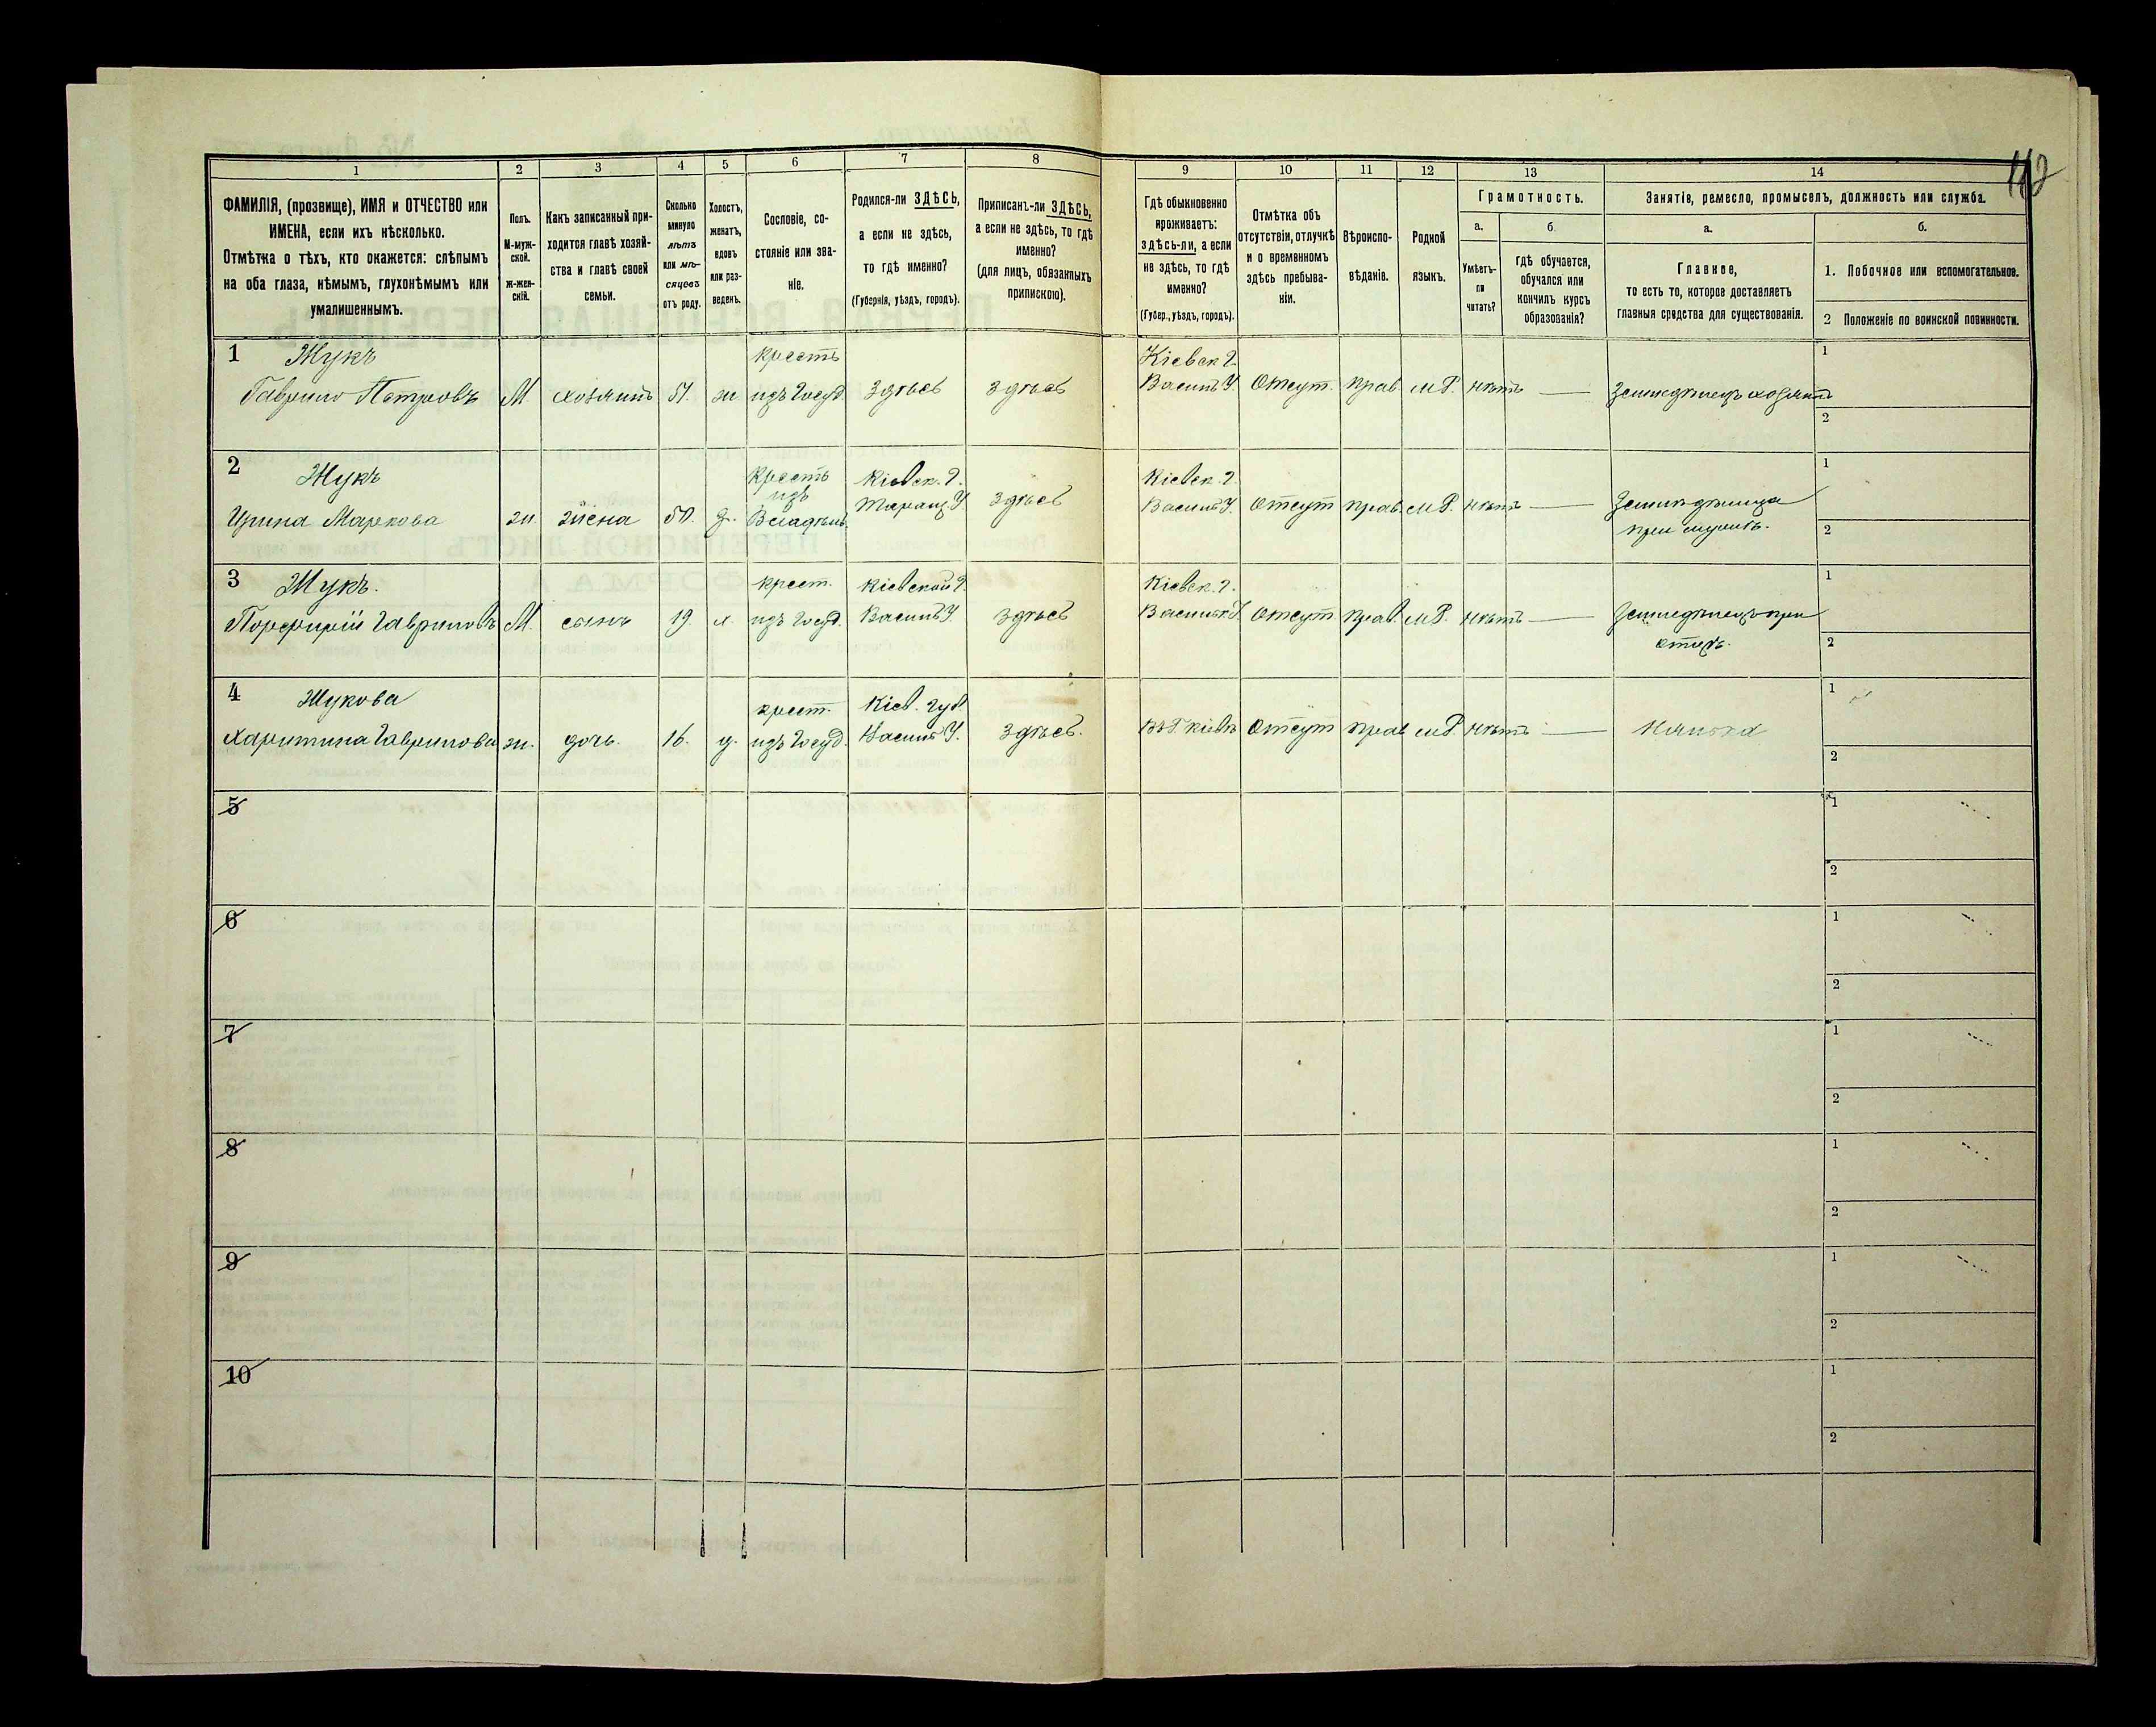 112
1 2 3 4 5 6 7 8 9 10 11 12 13 14
ФАМИЛІЯ, (прозвище), ИМЯ и ОТЧЕСТВО или
ИМЕНА, если ихъ нѣсколько.
Отмѣтка о тѣхъ, кто окажется: слѣпымъ
на оба глаза, нѣмымъ, глухонѣмымъ или
умалишеннымъ.
Полъ.
М-муж-
ской.
ж-жен-
скій.
Какъ записанный при-
ходится главѣ хозяй-
ства и главѣ своей
семьи.
Сколько
минуло
лѣтъ
или мѣ-
сяцевъ
отъ роду.
Холостъ,
женатъ,
вдовъ
или раз-
веденъ.
Сословіе, со-
стояніе или зва-
ніе.
Родился-ли ЗДѢСЬ,
а если не здѣсь,
то гдѣ именно?
(Губернія, уѣздъ, городъ).
Приписанъ-ли ЗДѢСЬ,
а если не здѣсь, то гдѣ
именно?
(для лицъ, обязанныхъ
припискою).
Гдѣ обыкновенно
проживаетъ:
здѣсь-ли, а если
не здѣсь, то гдѣ
именно?
(Губер., уѣздъ, городъ).
Отмѣтка объ
отсутствіи, отлучкѣ
и о временномъ
здѣсь пребыва-
ніи.
Вѣроиспо-
вѣданіе.
Родной
языкъ.
Грамотность.
а.
Умѣетъ-
ли
читать?
б.
гдѣ обучается,
обучался или
кончилъ курсъ
образованія?
Занятіе, ремесло, промыселъ, должность или служба.
а.
Главное,
то есть то, которое доставляетъ
главныя средства для существованія.
б.
1. Побочное или вспомогательное.
2 Положеніе по воинской повинности.
1 Жукъ крестъ Кіевск г. 1
Гаврило Петровъ М. хозяинъ 51. ж изъ Госуд. Здѣсь Здѣсь Василь У. Отсут. прав. м Р. нѣтъ — Земледѣлецъ хозяинъ
2
2 Жукъ крестъ Кіевск. г. Кіевск. г. 1
изъ Таращ У.
Ирина Маркова ж. жена 50. з. Владѣль. Здѣсь Василь У. Отсут прав. м Р. нѣтъ — Земледѣлица
при мужѣ. 2
3 Жукъ. крест. Кіевской г. Кіевск. г. 1
Порфирій Гавриловъ М. сынъ 19. х. изъ Госуд. Василь У. Здѣсь Васильк. У. Отсут прав. м Р. нѣтъ — Земледѣлецъ при
отцѣ. 2
4 Жукова крест. Кіев. губ 1
Харитина Гаврилова ж. дочь. 16. д. изъ Госуд. Василь У. Здѣсь. Въ г. Кіевѣ Отсут прав м Р нѣтъ — Нянька
2
5 1
2
6 1
2
7 1
2
8 1
2
9 1
2
10 1
2